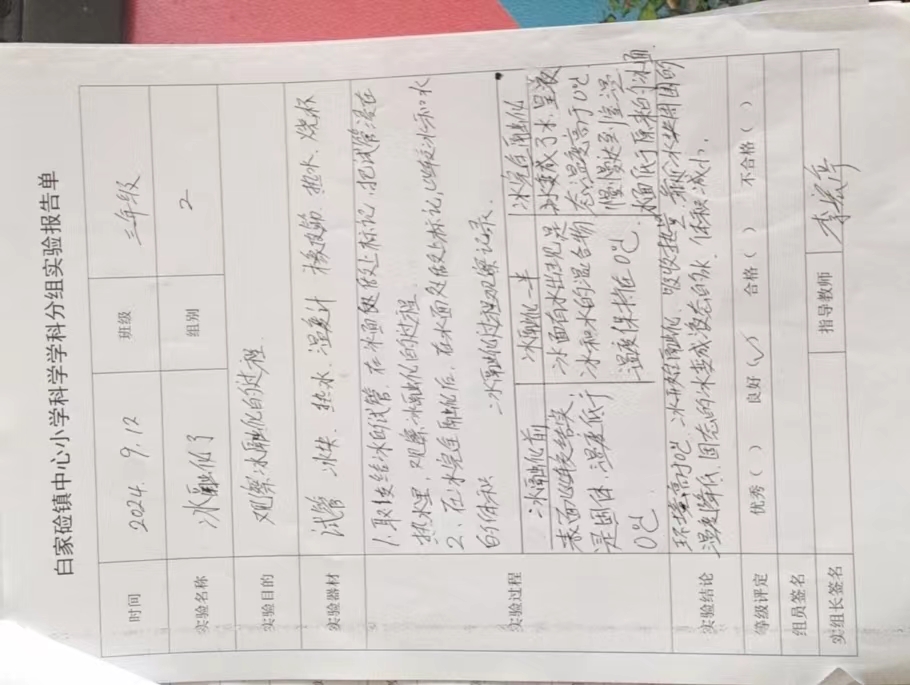 白家硷镇中心小学科学学科分组实验报告单
时间 2024. 9.12 班级 三年级
实验名称 冰融化了 组别 2
实验目的 观察冰融化的过程.
实验器材 试管 冰块 热水 温度计 橡皮筋 热水 烧杯
实验过程
1. 取结冰的试管,在冰面处做上标记,把试管浸在
热水里,观察冰融化的过程.
2. 在冰完全融化后,在水面处做上标记,比较冰和水
的体积.
冰融化过程观察记录.
冰融化前
表面
是固体,温度低于
0℃
冰融化一半
冰面有水出现是
冰和水的混合物
温度保持在0℃.
冰完全融化
冰变成了水,呈液
态温度高于0℃
慢慢达到室温
水面低于原来的冰面.
实验结论
环境高于0℃ 冰融化、吸收热量 周围的
温度降低,固态的冰变成液态的水,体积减小.
等级评定 优秀( ) 良好(✓) 合格( ) 不合格( )
组员签名
实组长签名 指导教师